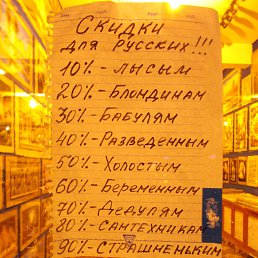 Скидки
для русских!!!
10%-лысым
20%-Блондинам
30%-Бабулям
40%-Разведенным
50%-Холостым
60%-Беременным
70%-Дедулям
80%-Сантехникам
90%-Страшненьким